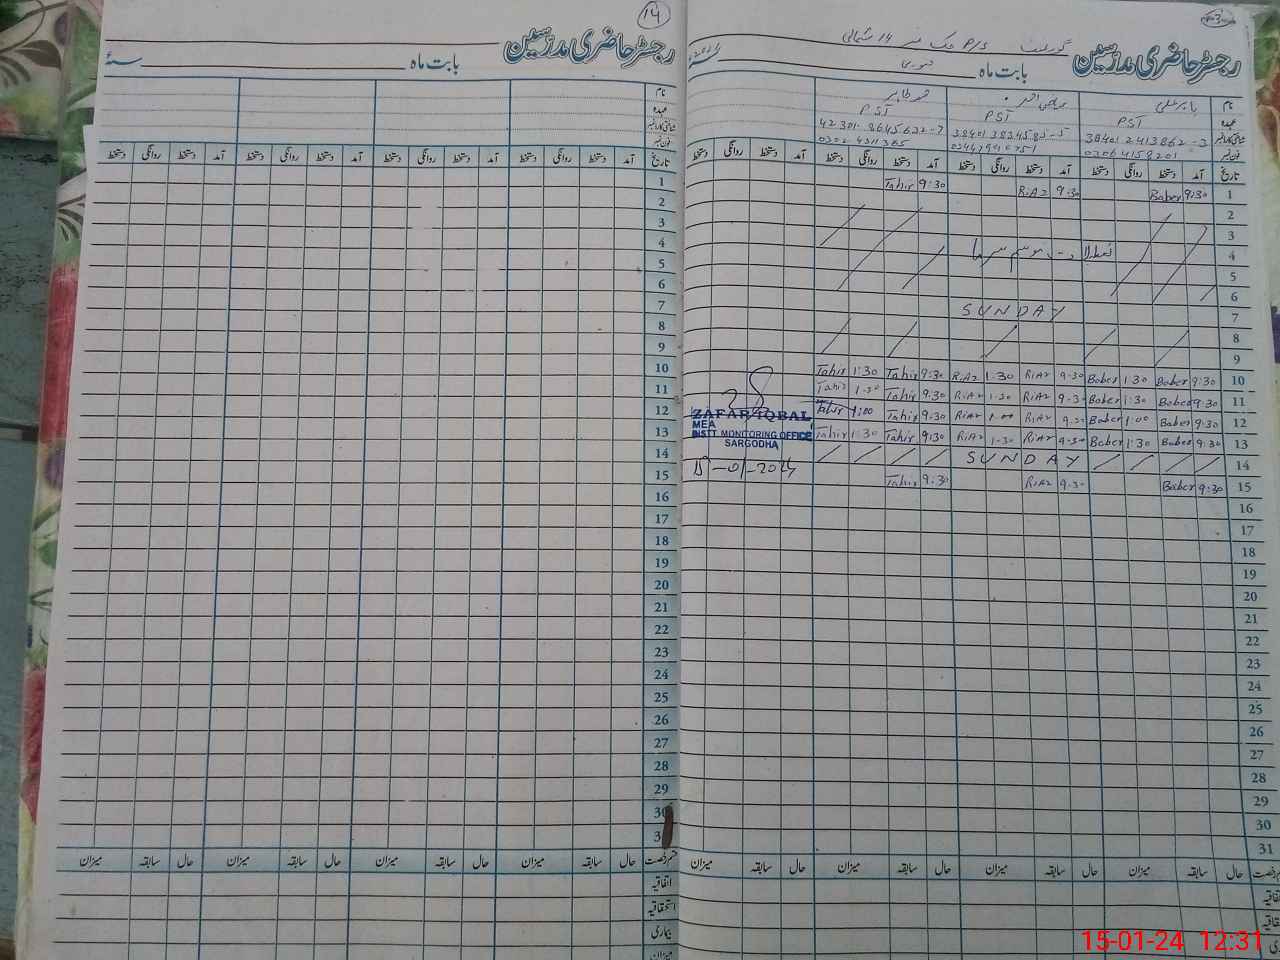 14
رجسٹر حاضری مدرسین
بابت ماہ سنۂ
نام
عہدہ
شناختی کارڈ نمبر
فون نمبر
تاریخ آمد دستخط روانگی دستخط آمد دستخط روانگی دستخط آمد دستخط روانگی دستخط آمد دستخط روانگی دستخط
1
2
3
4
5
6
7
8
9
10
11
12
13
14
15
16
17
18
19
20
21
22
23
24
25
26
27
28
29
30
3
قسم رخصت حال سابقہ میزان حال سابقہ میزان حال سابقہ میزان حال سابقہ میزان
اتفاقیہ
استحقاقیہ
بیماری
میزان
رجسٹر حاضری مدرسین
گورنمنٹ P/S چک نمبر 14 شمالی
بابت ماہ جنوری سنۂ
نام بابر علی ریاض احمد محمد طاہر
عہدہ PST PST PST
شناختی کارڈ نمبر 38401 2413862-3 38401 3834585-5 42301-8645632-7
فون نمبر 03064158201
تاریخ آمد دستخط روانگی دستخط آمد دستخط روانگی دستخط آمد دستخط روانگی دستخط آمد دستخط روانگی دستخط
1 9:30 Baber 9:30 RiAz 9:30 Tahir
2
3
4 تعطیلات موسم سرما
5
6
7 SUNDAY
8
9
10 9:30 Baber 1:30 Baber 9:30 RiAz 1:30 RiAz 9:30 Tahir 1:30 Tahir
11 9:30 Baber 1:30 Baber 9:30 RiAz 1:30 RiAz 9:30 Tahir 1:30 Tahir
12 9:30 Baber 1:00 Baber 9:30 RiAz 1:00 RiAz 9:30 Tahir 1:00 Tahir
13 9:30 Baber 1:30 Baber 9:30 RiAz 1:30 RiAz 9:30 Tahir 1:30 Tahir
14 SUNDAY
15 9:30 Baber 9:30 RiAz 9:30 Tahir
ZAFAR IQBAL
MEA
DISTT MONITORING OFFICE
SARGODHA
15-01-2024
16
17
18
19
20
21
22
23
24
25
26
27
28
29
30
31
قسم رخصت حال سابقہ میزان حال سابقہ میزان حال سابقہ میزان حال سابقہ میزان
15-01-24 12:31